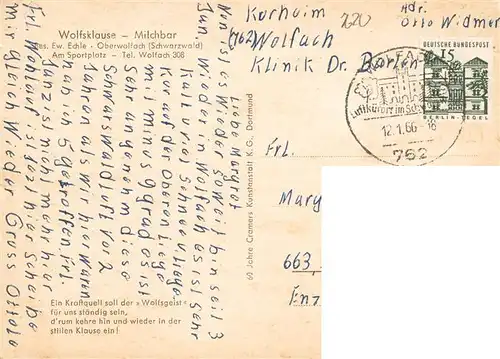 Wolfsklause – Milchbar
Bes. Ew. Echle · Oberwolfach (Schwarzwald)
Am Sportplatz – Tel. Wolfach 308
Liebe Margrot
Nun ist es wieder soweit bin seit 3
Jan. Wieder in Wolfach es ist sehr
Kalt u. viel Schnee u. Liege
Kur auf der Oberen Liege
mit minus 9 grad es ist
Sehr angenehm diese
Schwarzwald Luft vor 2
Jahren als Wir hier Waren
5 getroffen Frl.
ist nicht mehr hier
Frl. ist jetzt hier
mir gleich Wieder Gruss Otto
Ein Kraftquell soll der »Wolfsgeist«
für uns ständig sein,
d'rum kehre hin und wieder in der
stillen Klause ein!
60 Jahre Cramers Kunstanstalt K.G., Dortmund
Adr.
Otto Widmer
Kurheim
(762) Wolfach
Klinik Dr.
220
DEUTSCHE BUNDESPOST
15
BERLIN-TEGEL
WOLFACH
Luftkurort im Schw
12.1.66-18
762
Frl.
Mary
663
Enz